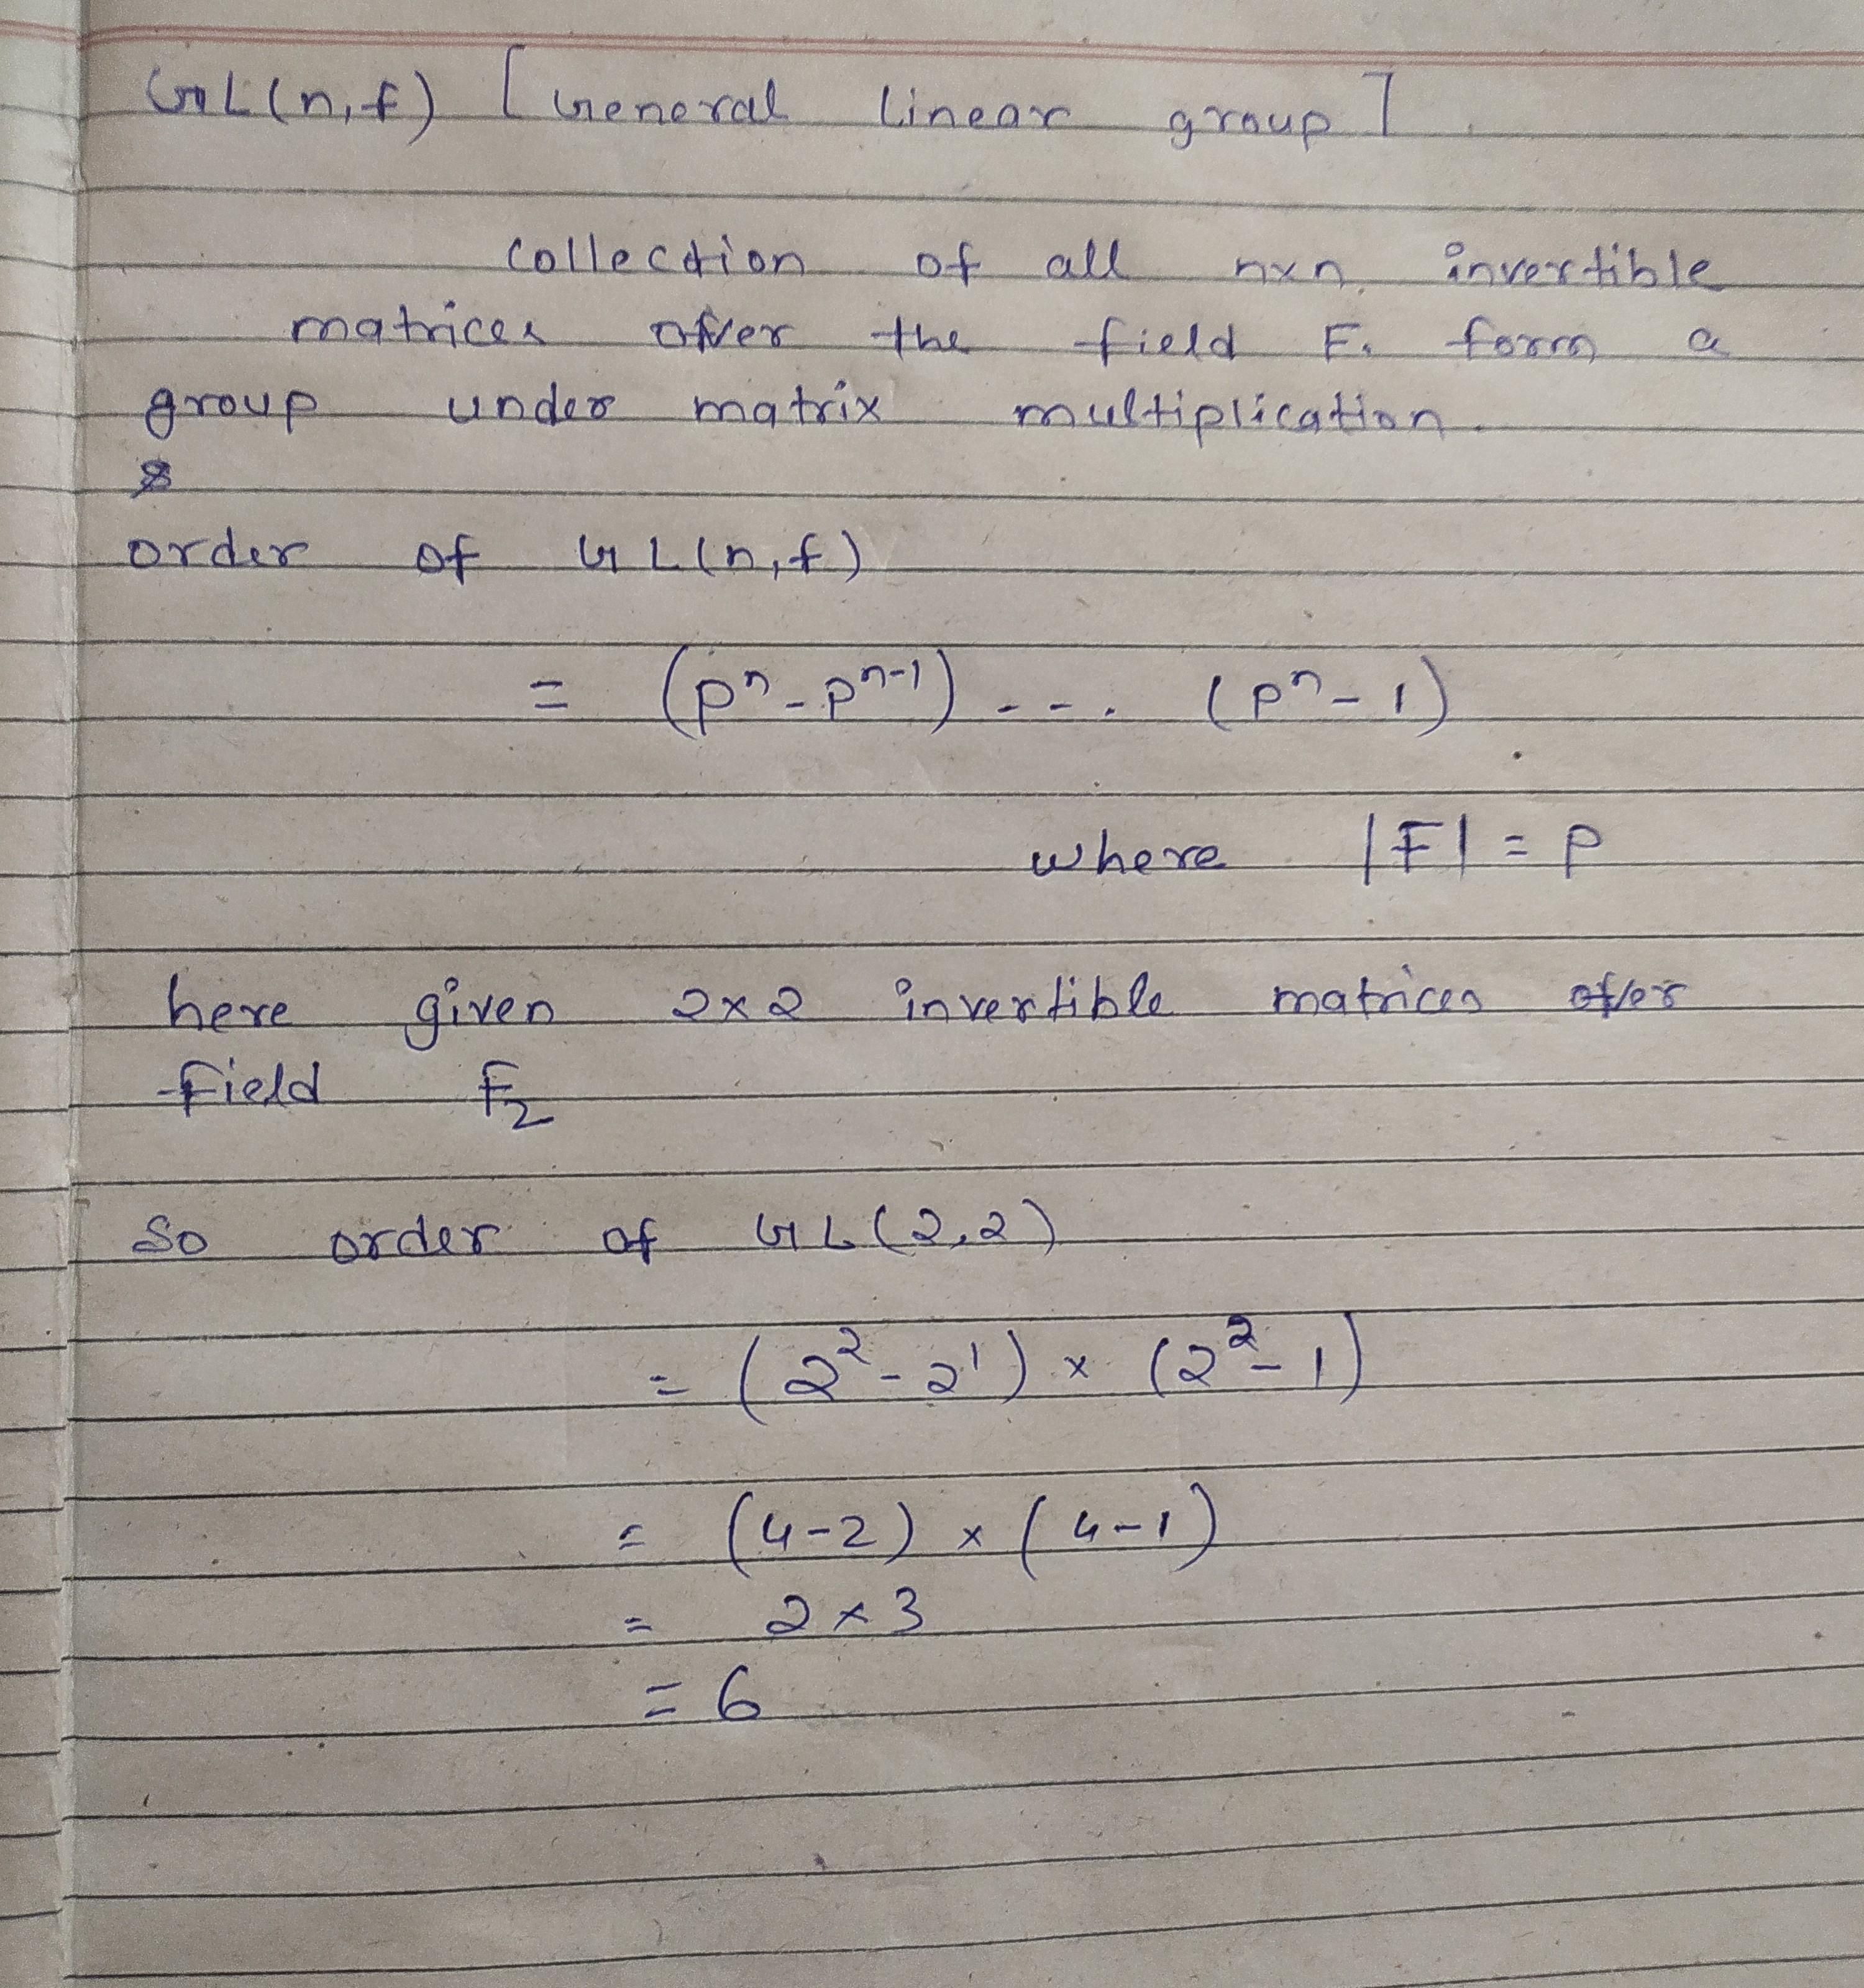 GL(n,f) [General linear group]
collection of all n×n invertible
matrices over the field F. form a
group under matrix multiplication.
order of GL(n,f)
= (pⁿ - pⁿ⁻¹) - - - . (pⁿ - 1)
where |F| = p
here given 2×2 invertible matrices over
field F₂
So order of GL(2,2)
= (2² - 2¹) × (2² - 1)
= (4-2) × (4-1)
= 2×3
= 6